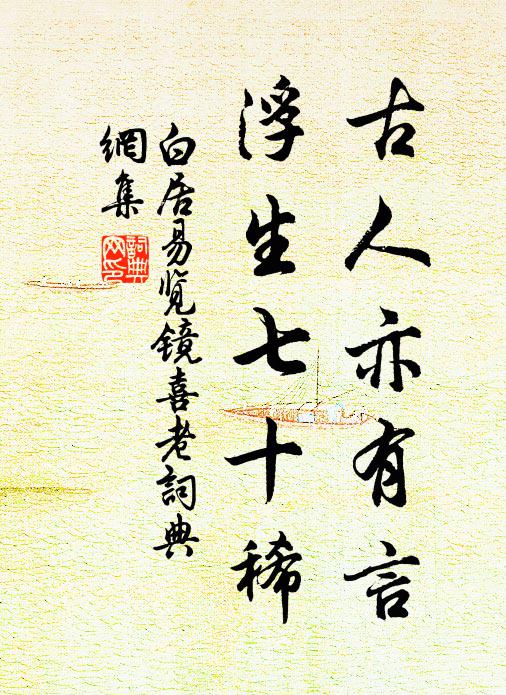 古人亦有言
浮生七十稀
白居易览镜喜老詞典
網集
詞典
网印